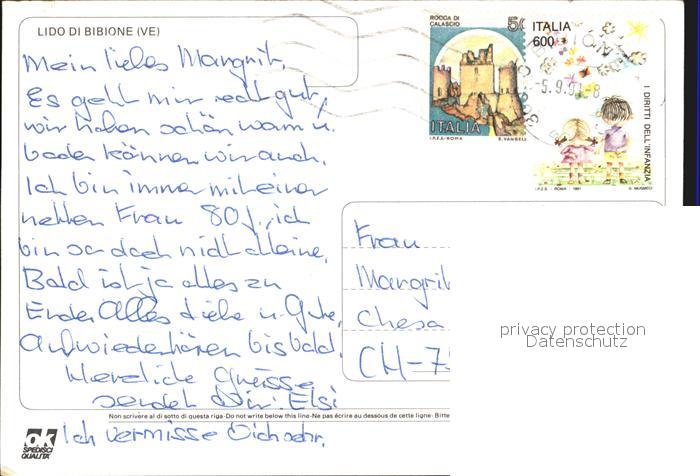 LIDO DI BIBIONE (VE)
Mein liebes Margrit,
Es geht mir recht gut,
wir haben schön warm u.
baden können wir auch.
Ich bin immer mit einer
netten Frau 80 j., ich
bin so doch nicht alleine.
Bald ist ja alles zu
Ende. Alles Liebe u. Gute.
Aufwiederhören bis bald.
Herzliche Grüsse
sendet Dir Elsi
Ich vermisse Dich sehr.
ROCCA DI
CALASCIO
ITALIA
I.P.Z.S.-ROMA
ITALIA
600
I DIRITTI DELL'INFANZIA
I.P.Z.S. - ROMA - 1991
5.9.91-8
Frau
Margrit
Chesa
CH-75
privacy protection
Datenschutz
Non scrivere al di sotto di questa riga-Do not write below this line-Ne pas écrire au dessous de cette ligne- Bitte
ok
SPEDISCI
QUALITÀ